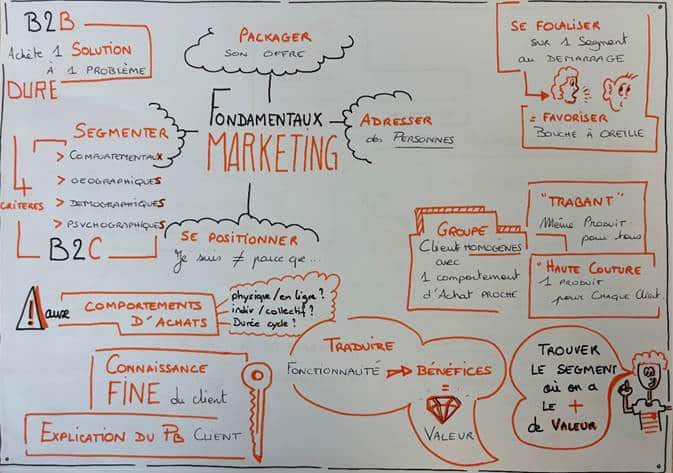 B2B
Achète 1 SOLUTION
À 1 PROBLÈME
DURE
PACKAGER
SON OFFRE
FONDAMENTAUX
MARKETING
ADRESSER
des PERSONNES
SE FOCALISER
SUR 1 Segment
au DEMARRAGE
= FAVORISER
BOUCHE À OREILLE
SEGMENTER
4
CRITÈRES
> COMPORTEMENTAUX
> GEOGRAPHIQUES
> DÉMOGRAPHIQUES
> PSYCHOGRAPHIQUES
B2C
SE POSITIONNER
Je suis ≠ parce que...
GROUPE
Client HOMOGÈNES
avec
1 comportement
d'Achat PROCHE
"TRABANT"
Même PRODUIT
pour tous
"HAUTE COUTURE
1 PRODUIT
pour CHAQUE Client
! aux
COMPORTEMENTS
D'ACHATS
physique/en ligne ?
indiv/collectif ?
Durée cycle ?
CONNAISSANCE
FINE du client
EXPLICATION DU PB CLIENT
TRADUIRE
FONCTIONNAUTÉ
BÉNÉFICES
=
VALEUR
TROUVER
LE SEGMENT
OÙ ON A
LE +
de VALEUR